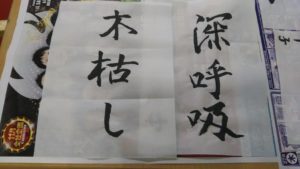 深呼吸
木枯し